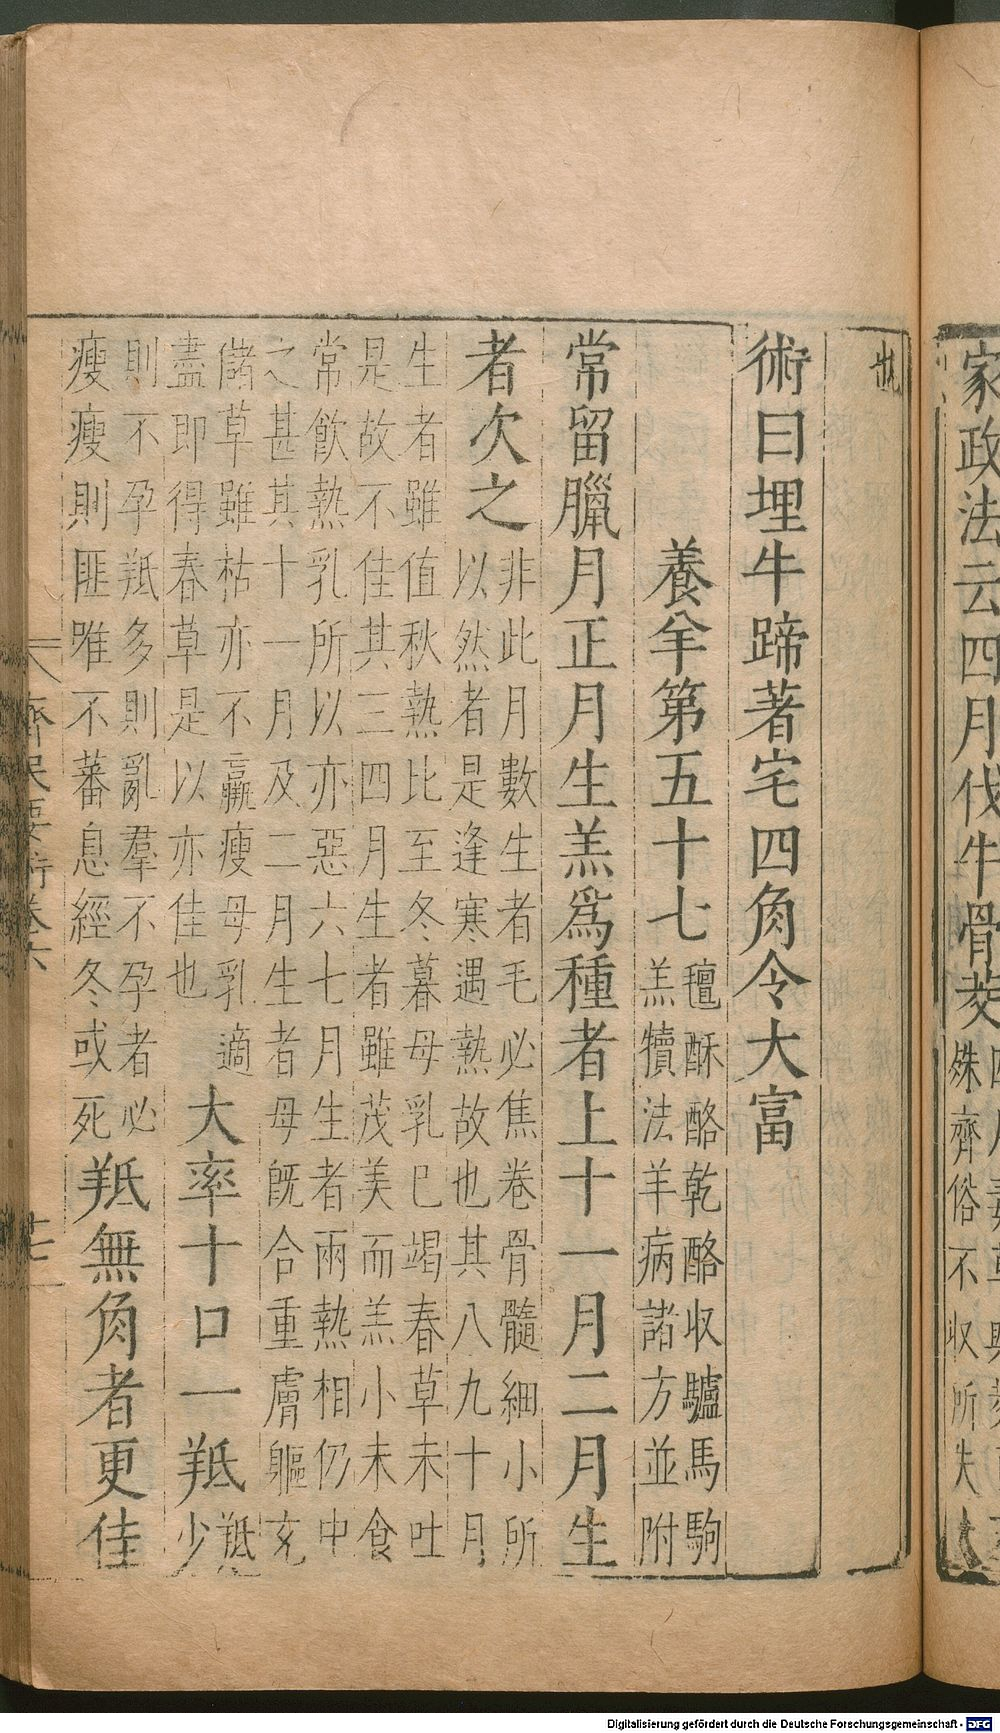 家政法云四月伐牛骨茭
殊齊俗不収所失大
術曰埋牛蹄著宅四角令大富
養羊第五十七
氊酥酪乾酪収驢馬駒
羔犢法羊病諸方並附
常留臘月正月生羔爲種者上十一月二月生
者次之
非此月數生者毛必焦卷骨髓細小所
以然者是逢寒遇熱故也其八九十月
生者雖值秋熱比至冬暮母乳巳竭春草未吐
是故不佳其三四月生者雖茂美而羔小未食
常飲熱乳所以亦惡六七月生者兩熱相仍中
之甚其十一月及二月生者母旣合重膚軀充
儲草雖枯亦不羸瘦母乳適
盡即得春草是以亦佳也
大率十口一羝
羝
少
則不孕羝多則亂羣不孕者必
瘦瘦則匪唯不蕃息經冬或死
羝無角者更佳
齊民要術卷六
Digitalisierung gefördert durch die Deutsche Forschungsgemeinschaft - DFG